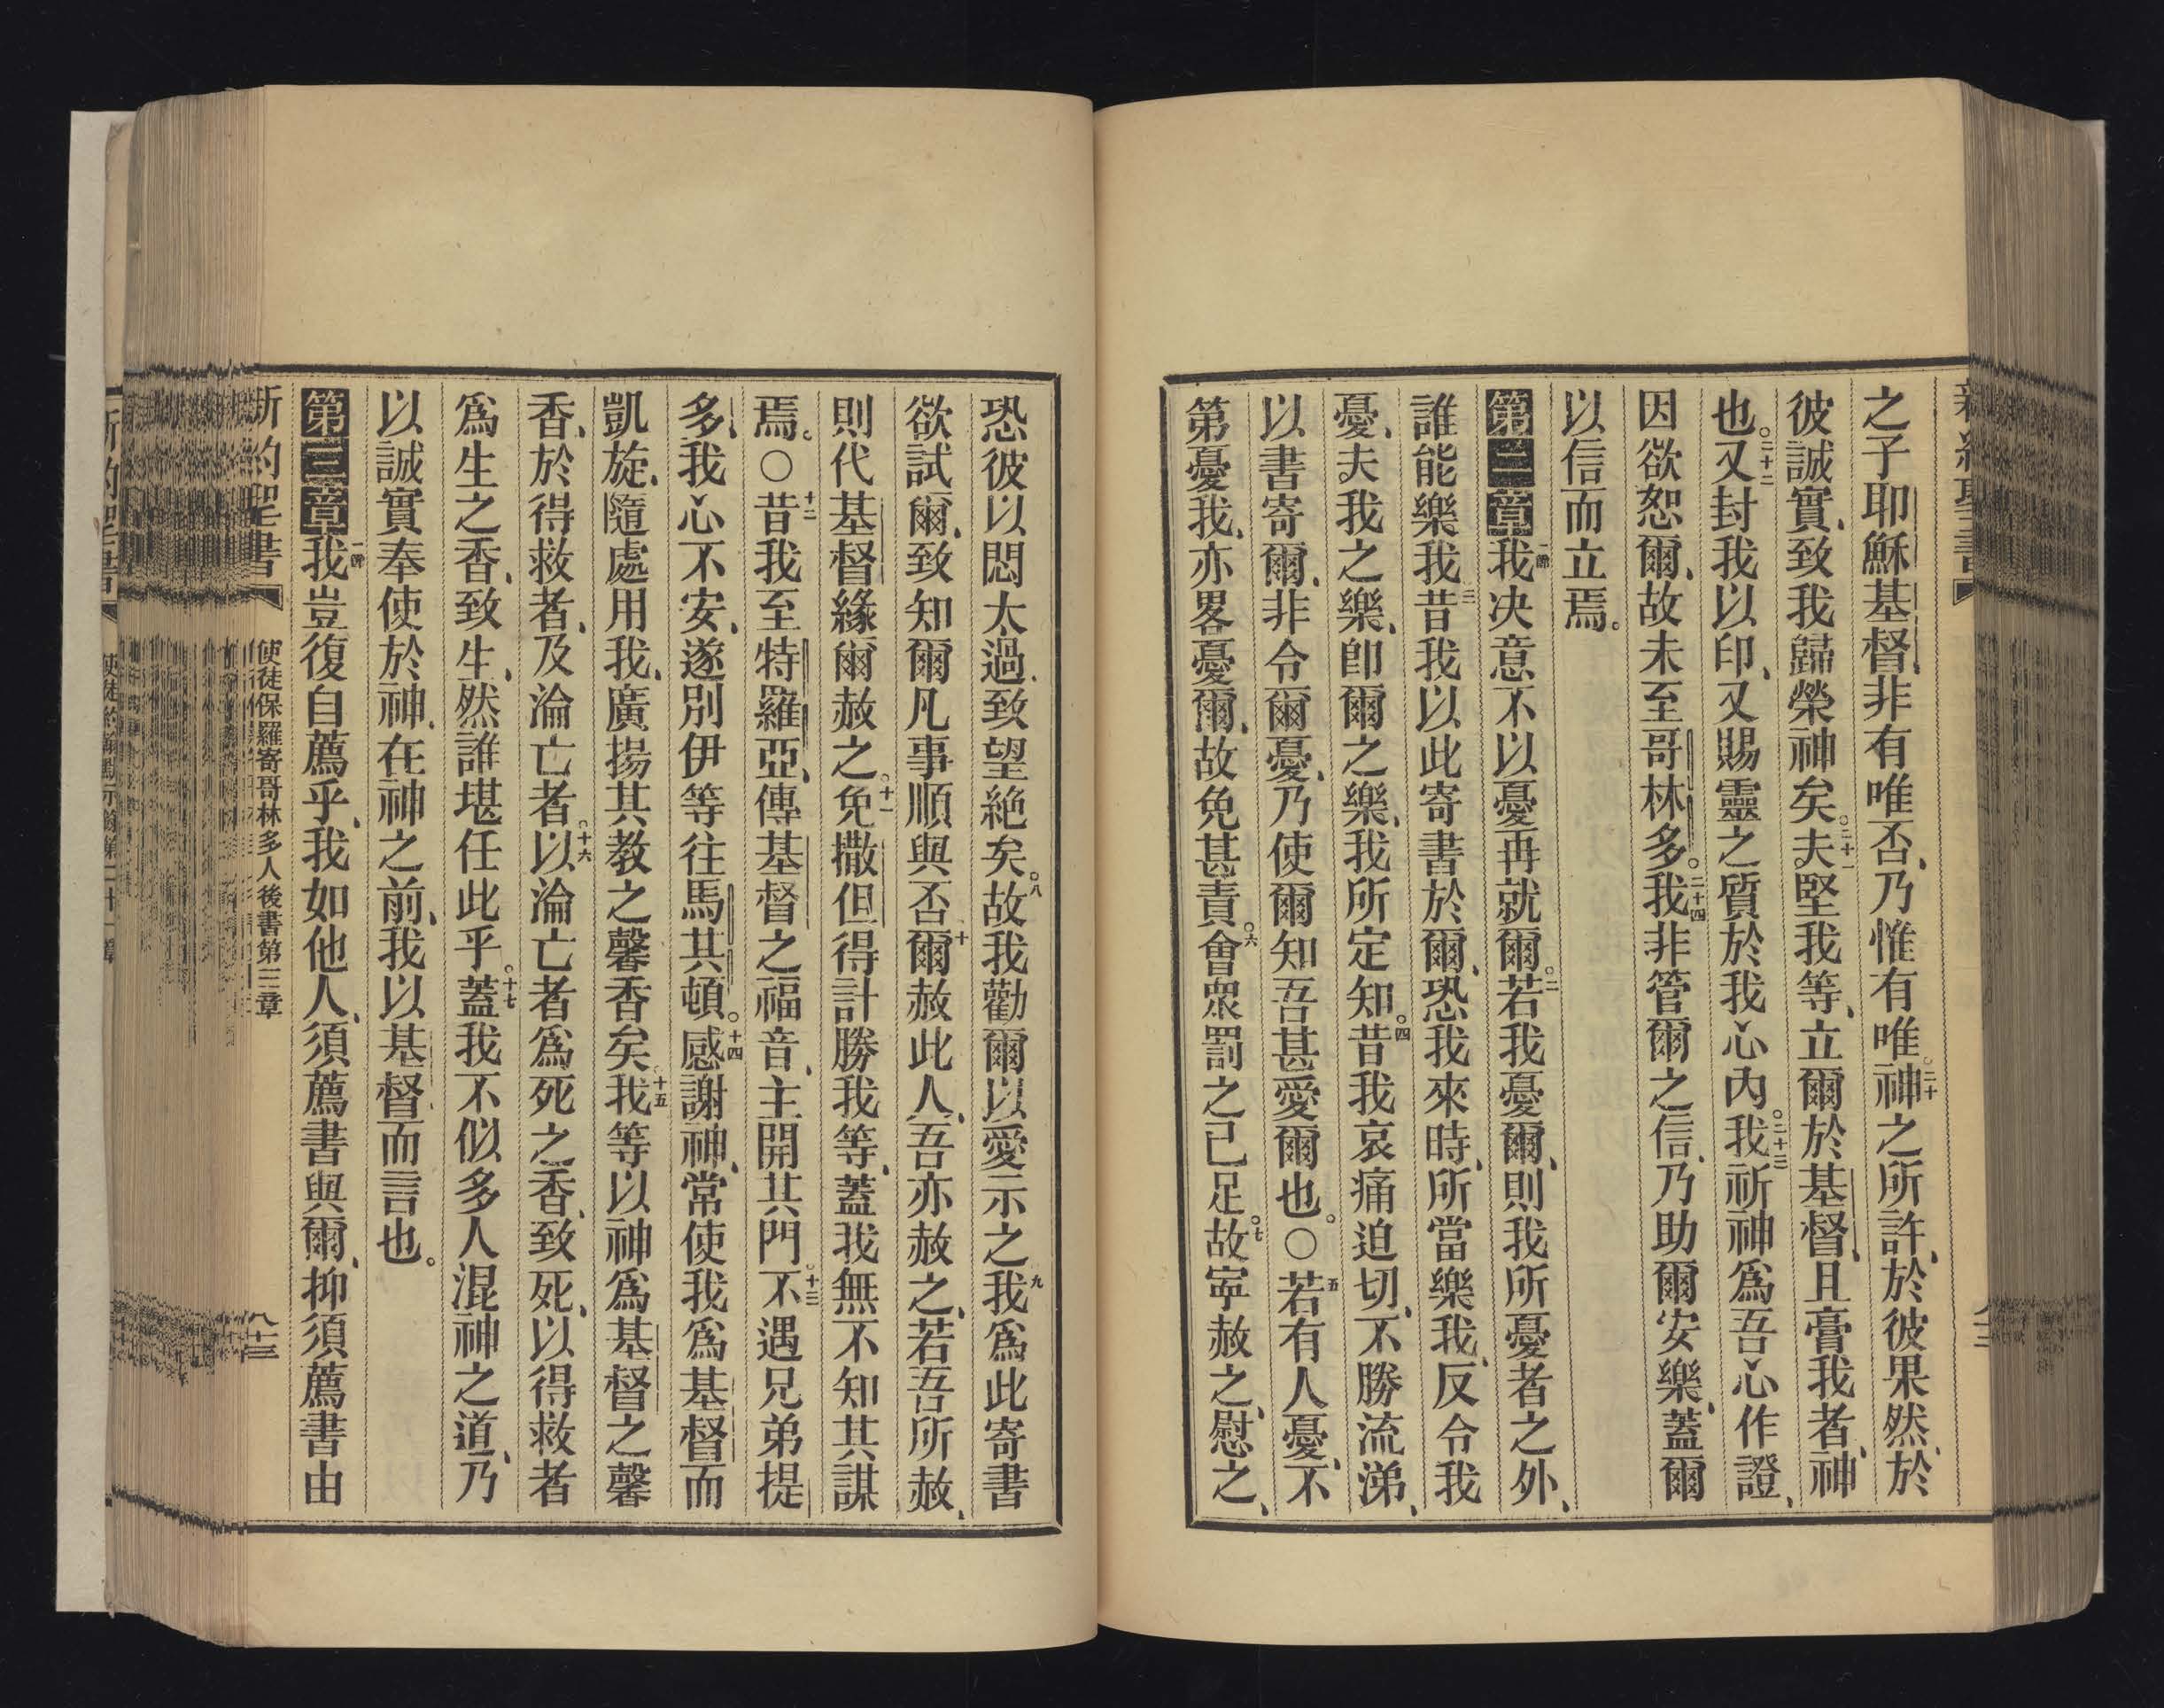 之子耶穌基督、非有唯否、乃惟有唯。二十神之所許、於彼果然、於
彼誠實、致我歸榮神矣。二十一夫堅我等、立爾於基督、且膏我者、神
也。二十二又封我以印、又賜靈之質於我心內。二十三我祈神爲吾心作證、
因欲恕爾、故未至哥林多。二十四我非管爾之信、乃助爾安樂、蓋爾
以信而立焉。
第二章一節我決意不以憂再就爾。二若我憂爾、則我所憂者之外、
誰能樂我三昔我以此寄書於爾、恐我來時、所當樂我、反令我
憂、夫我之樂、卽爾之樂、我所定知。四昔我哀痛迫切、不勝流涕、
以書寄爾、非令爾憂、乃使爾知吾甚愛爾也。〇五若有人憂、不
第憂我、亦畧憂爾、故免甚責。六會眾罰之已足。七故寧赦之、慰之、
恐彼以悶太過、致望絕矣。八故我勸爾以愛示之九我爲此寄書
欲試爾、致知爾凡事順與否十爾赦此人、吾亦赦之、若吾所赦、
則代基督緣爾赦之。十一免撒但得計勝我等、蓋我無不知其謀
焉。〇十二昔我至特羅亞、傳基督之福音、主開其門。十三不遇兄弟提
多、我心不安、遂別伊等往馬其頓。十四感謝神、常使我爲基督而
凱旋、隨處用我、廣揚其教之馨香矣。十五我等以神爲基督之馨
香、於得救者、及淪亡者。十六以淪亡者爲死之香、致死、以得救者
爲生之香、致生、然誰堪任此乎。十七蓋我不似多人混神之道、乃
以誠實奉使於神、在神之前、我以基督而言也。
第三章一節我豈復自薦乎、我如他人、須薦書與爾、抑須薦書由
新約聖書 使徒保羅寄哥林多人後書第三章 八十三